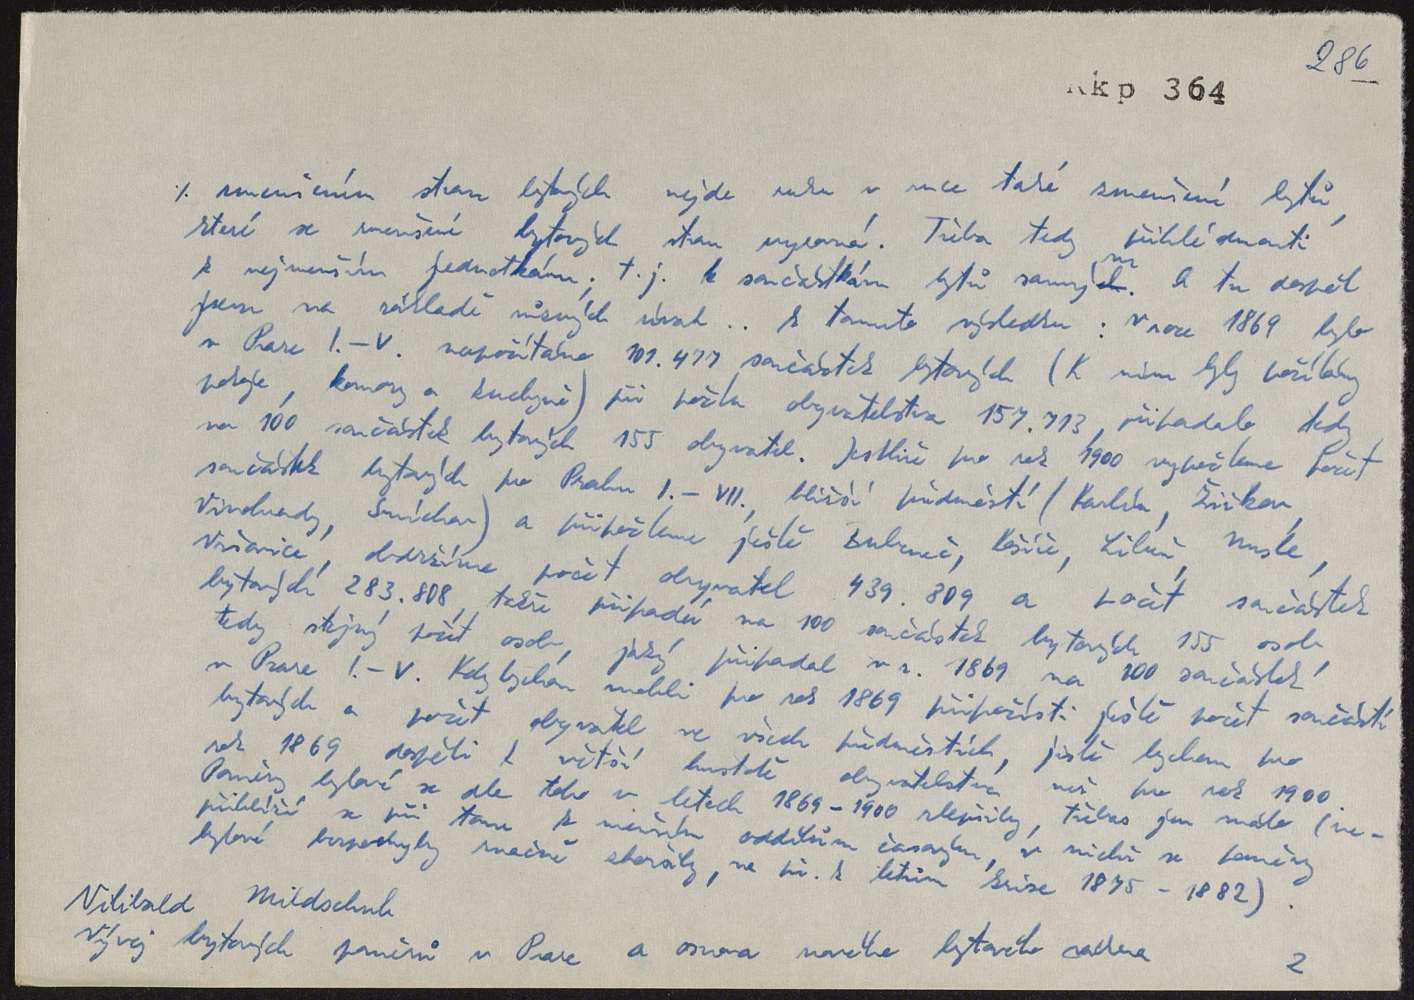 286
Rkp 364
./. zmenšením stran bytových nejde ruku v ruce také zmenšení bytů,
které se zmenšené bytových stran vyrovná. Třeba tedy přihlédnouti
k nejmenším jednotkám, t.j. k součástkám bytů samým. A tu dospěl
jsem na základě různých úvah .. k tomuto výsledku: V roce 1869 bylo
v Praze I.–V. napočítáno 101.477 součástek bytových (K nim byly počítány
pokoje, komory a kuchyně) při počtu obyvatelstva 157.713, připadalo tedy
na 100 součástek bytových 155 obyvatel. Jestliže pro rok 1900 vypočteme počet
součástek bytových pro Prahu I.–VII., bližší předměstí (Karlín, Žižkov,
Vinohrady, Smíchov) a připočteme ještě Bubeneč, Košíře, Libeň, Nusle,
Vršovice, obdržíme počet obyvatel 439.809 a počet součástek
bytových 283.808, takže připadá na 100 součástek bytových 155 osob
tedy stejný počet osob, jaký připadal v r. 1869 na 100 součástek
v Praze I.–V. Kdybychom mohli pro rok 1869 připočísti ještě počet součástí
bytových a počet obyvatel ve všech předměstích, jistě bychom pro
rok 1869 dospěli k větší hustotě obyvatelstva než pro rok 1900.
Poměry bytové se dle toho v letech 1869–1900 zlepšily, třebas jen málo (ne-
přihlíží se při tom k menším oddílům časovým, v nichž se poměry
bytové bezpochyby značně zhoršily, na př. k letům krise 1875–1882).
Vilibald Mildschuh
Vývoj bytových poměrů v Praze a osnova nového bytového zákona
2